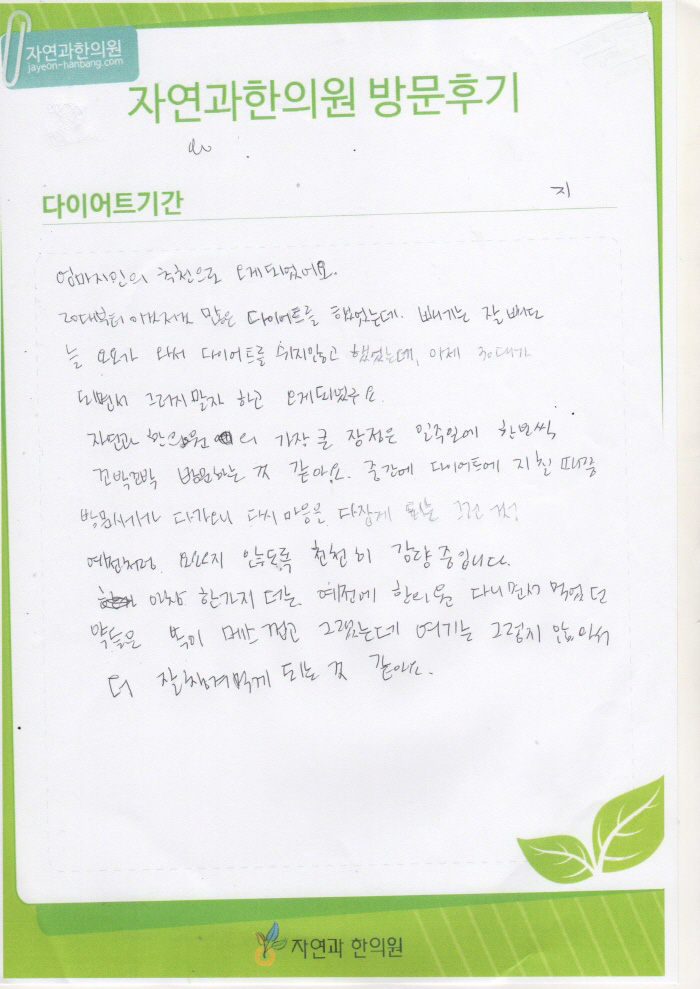 자연과한의원
jayeon-hanbang.com
자연과한의원 방문후기
다이어트기간
지
엄마지인의 추천으로 오게되었어요.
20대부터 이것저것 많은 다이어트를 했었는데. 빼기는 잘 빼도
늘 요요가 와서 다이어트를 쉬지않고 했었는데, 이제 30대가
되면서 그러지말자 하고 오게되었구요.
자연과 한의원의 가장 큰 장점은 일주일에 한번씩
꼬박꼬박 방문하는 것 같아요. 중간에 다이어트에 지칠 때쯤
방문세가 다가오니 다시 마음을 다잡게 되는 그런 것?
예전처럼 요요지 않도록 천천히 감량 중입니다.
한가지 더는 예전에 한의원 다니면서 먹었던
약들은 뚝이 메스껍고 그랬는데 여기는 그렇지 않아서
더 잘챙겨먹게 되는 것 같아요.
자연과 한의원